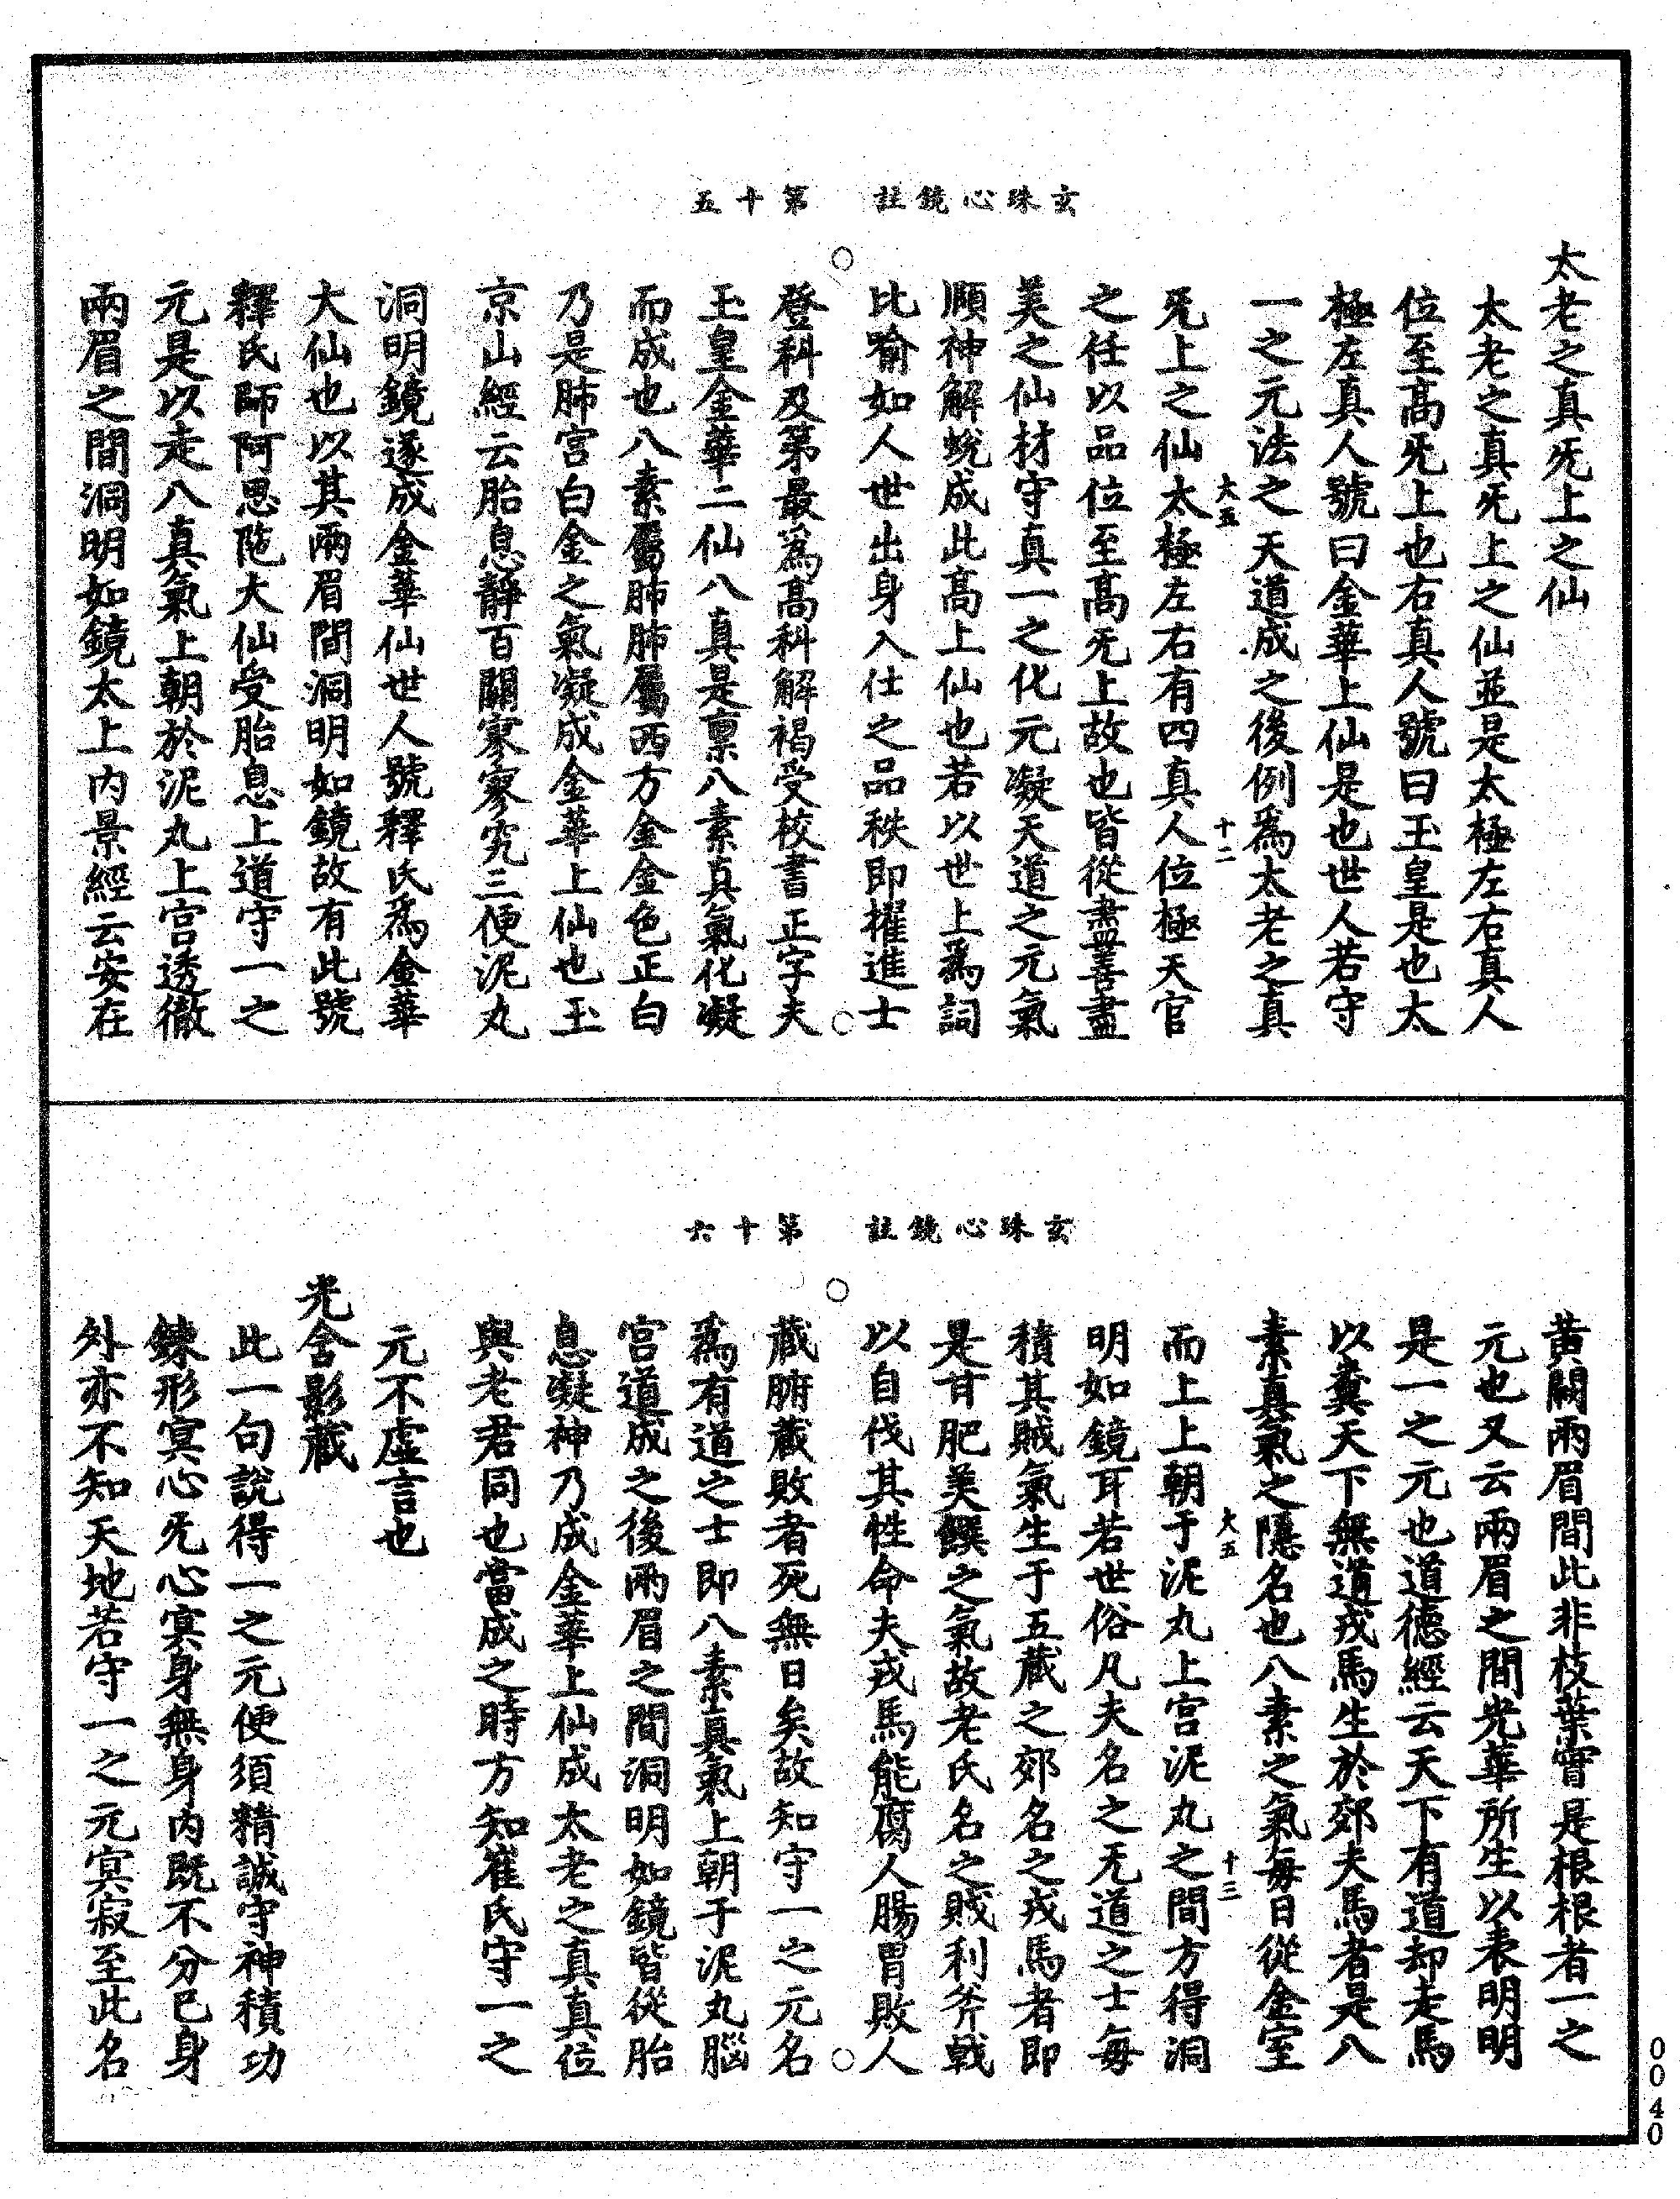 玄珠心鏡註　第十五
太老之真旡上之仙
太老之真旡上之仙並是太極左右真人
位至高旡上也右真人號曰玉皇是也太
極左真人號曰金華上仙是也世人若守
一之元法之天道成之後例爲太老之真
旡上之仙太極左右有四真人位極天官
大五
十二
之任以品位至高旡上故也皆從盡善盡
美之仙材守真一之化元凝天道之元氣
順神解蛻成此高上仙也若以世上爲詞
比喻如人世出身入仕之品秩即擢進士
登科及第最爲高科解褐受校書正字夫
玉皇金華二仙八真是禀八素真氣化凝
而成也八素屬肺肺屬西方金金色正白
乃是肺宫白金之氣凝成金華上仙也玉
京山經云胎息靜百關寥寥究三便泥丸
洞明鏡遂成金華仙世人號釋氏爲金華
大仙也以其兩眉間洞明如鏡故有此號
釋氏師阿思陁大仙受胎息上道守一之
元是以走八真氣上朝於泥丸上宫透徹
兩眉之間洞明如鏡太上内景經云安在
玄珠心鏡註　第十六
黃闕兩眉間此非枝葉實是根根者一之
元也又云兩眉之間光華所生以表明明
是一之元也道德經云天下有道却走馬
以糞天下無道戎馬生於郊夫馬者是八
素真氣之隱名也八素之氣每日從金室
而上上朝于泥丸上宫泥丸之間方得洞
大五
十三
明如鏡耳若世俗凡夫名之无道之士每
積其賊氣生于五藏之郊名之戎馬者即
是甘肥美饌之氣故老氏名之賊利斧戟
以自伐其性命夫戎馬能腐人腸胃敗人
藏腑藏敗者死無日矣故知守一之元名
爲有道之士即八素真氣上朝于泥丸腦
宫道成之後兩眉之間洞明如鏡皆從胎
息凝神乃成金華上仙成太老之真真位
與老君同也當成之時方知崔氏守一之
元不虛言也
光含影藏
此一句說得一之元便須精誠守神積功
鍊形冥心旡心冥身無身内既不分巳身
外亦不知天地若守一之元冥寂至此名
0040